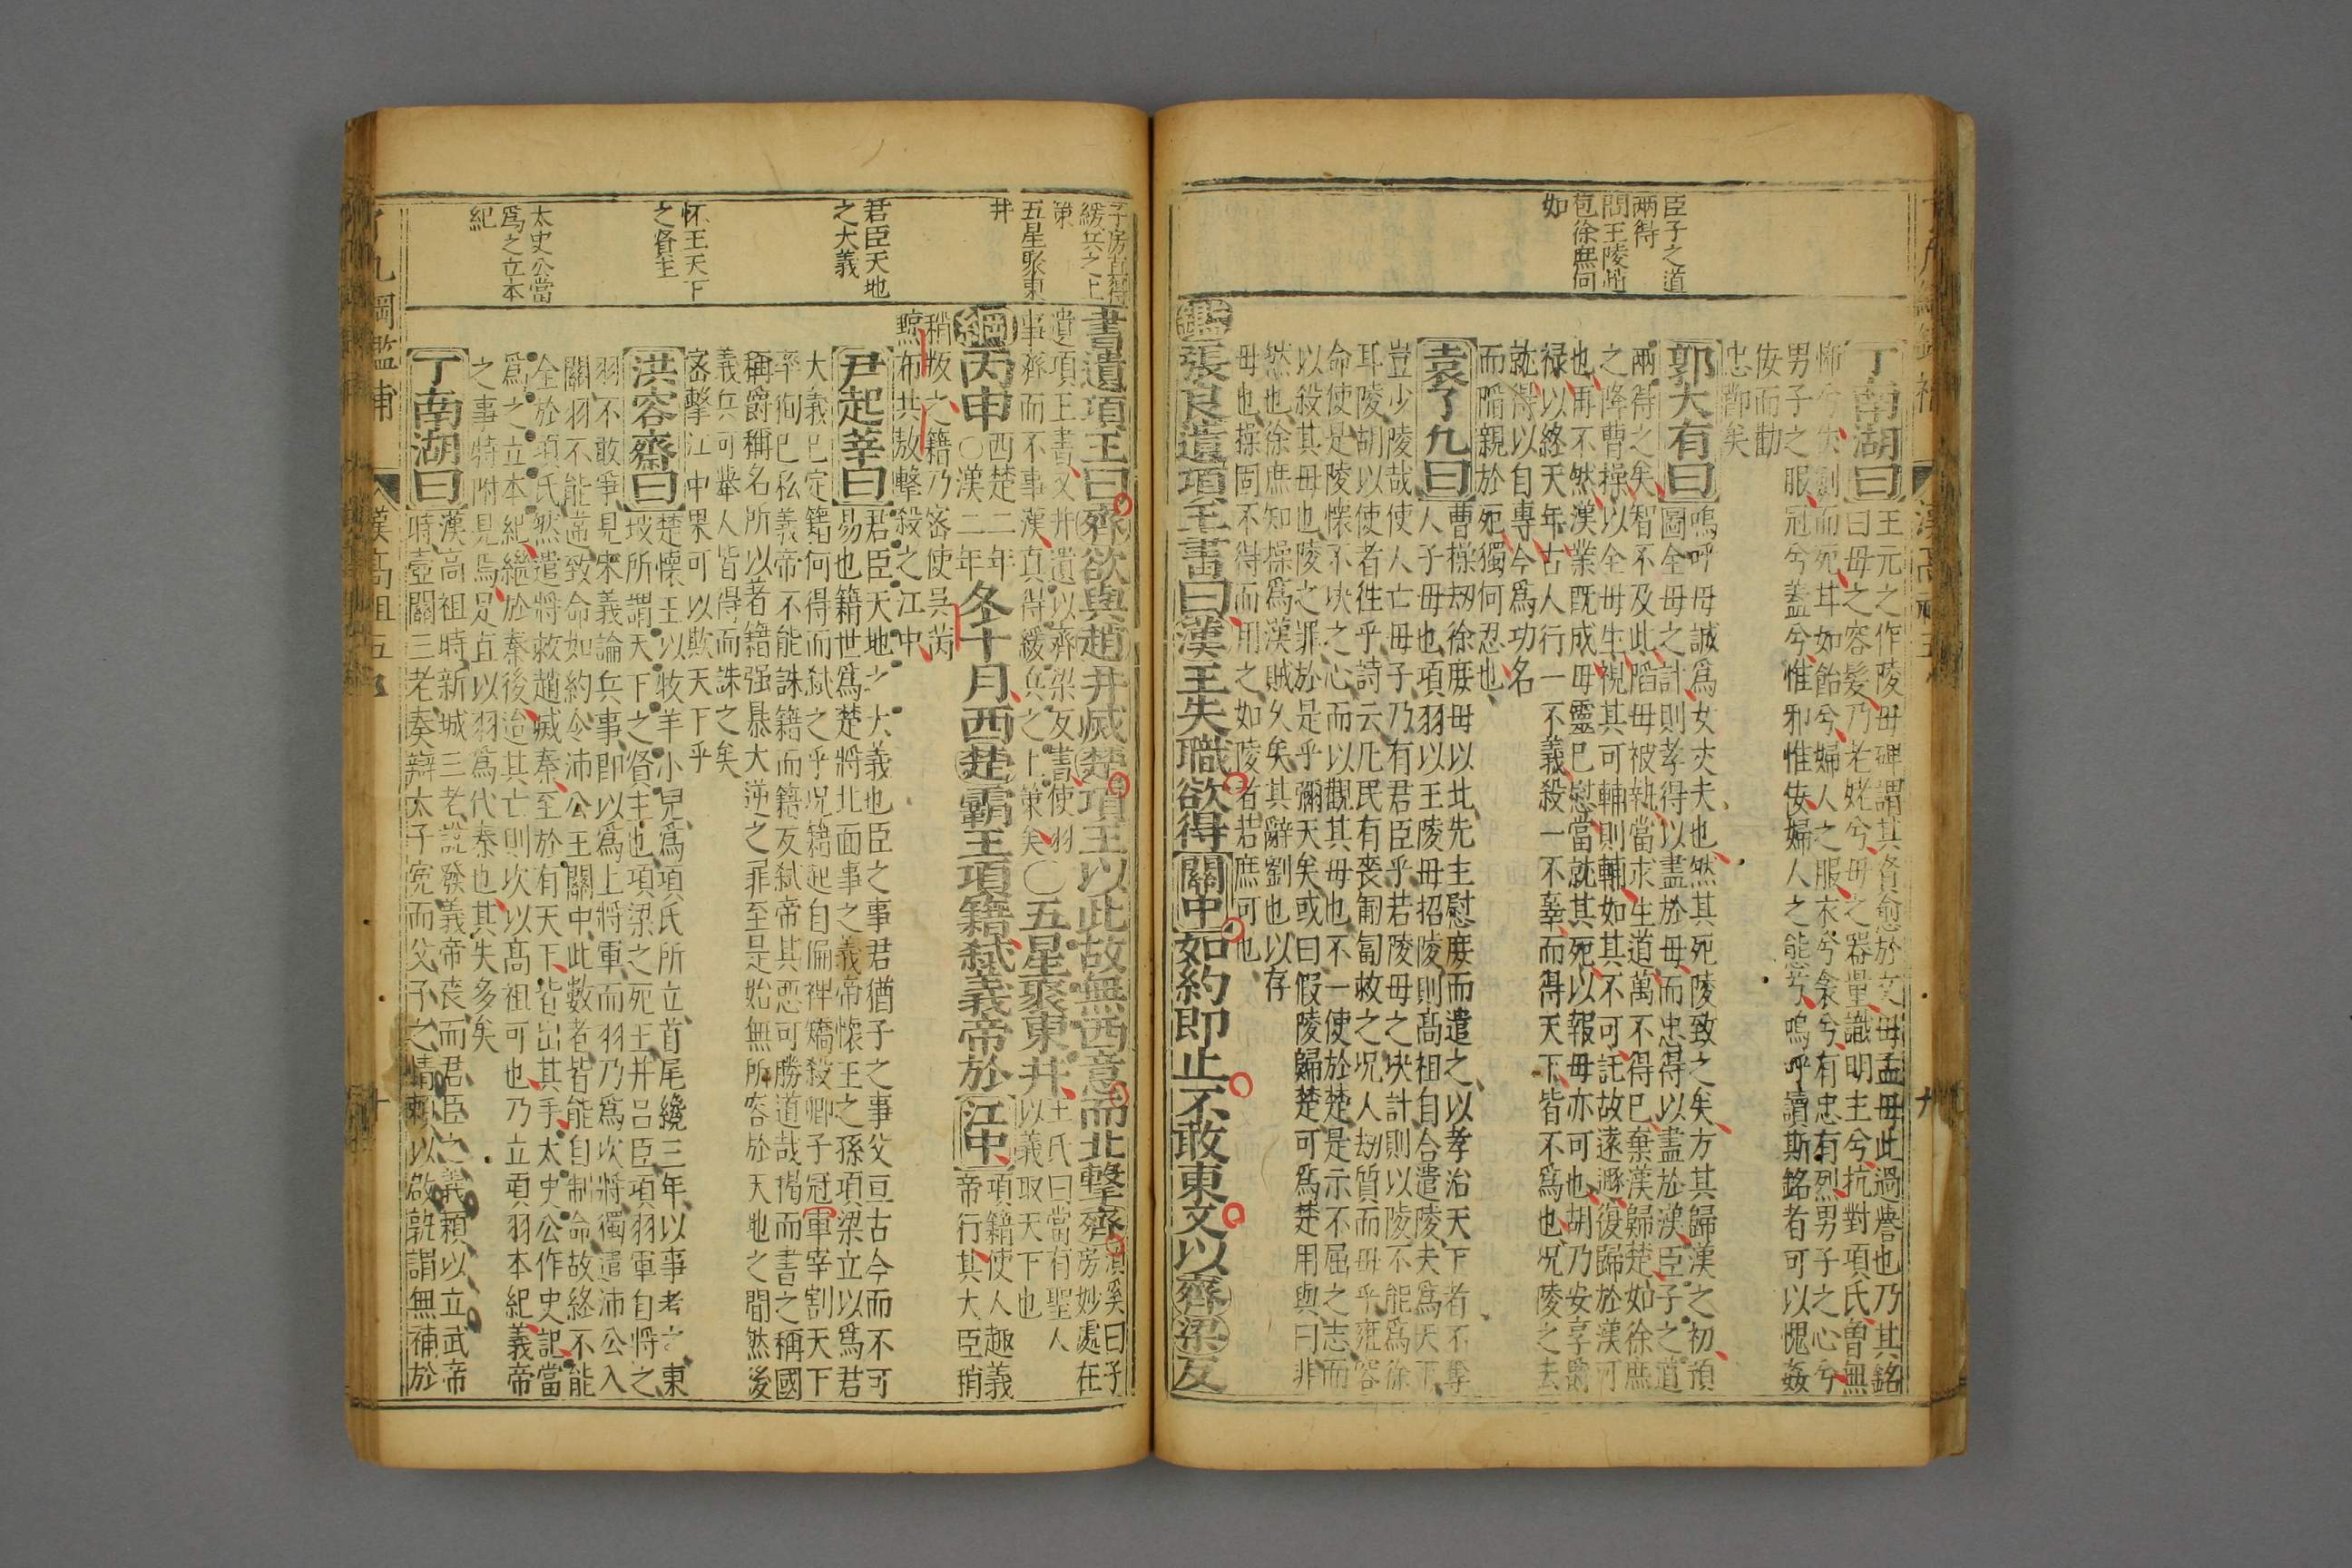 臣子之道
兩得
問王陵趙
苞徐庶何
如
丁南湖曰
王元之作陵母碑謂其賢愈於文母孟母此過譽也乃其銘
曰母之容髮乃老姥兮母之器量識明主兮抗對項氏曾無
怖兮失劍而死甘如飴兮婦人之服衣兮衾兮有忠有烈男子之心兮
男子之服冠兮蓋兮惟邪惟佞婦人之態兮嗚呼讀斯銘者可以愧姦
佞而勸
忠鄙矣
郭大有曰
嗚呼母誠為女丈夫也然其死陵致之矣方其歸漢之初預
圖全母之計則孝得以盡於母而忠得以盡於漢臣子之道
兩得之矣智不及此陷母被執當求生道萬不得已棄漢歸楚如徐庶
之降曹操以全母生視其可輔則輔如其不可託故遠遯復歸於漢可
也再不然漢業既成母靈已慰當就其死以報母亦可也胡乃安享爵
祿以終天年古人行一不義殺一不辜而得天下皆不為也况陵之去
就得以自專今為功名
而陷親於死獨何忍也
袁了凡曰
曹操刼徐庶母以此先主慰庶而遣之以孝治天下者不奪
人子母也項羽以王陵母招陵則高祖自合遣陵夫為天下
豈少陵哉使人亡母子乃有君臣乎若陵母之决計則以陵不能為徐
耳陵胡以使者往乎詩云凡民有喪匍匐救之况人刼質而母乎雍容
命使是陵懷不决之心而以觀其母也不一使於楚是示不屈之志而
以殺其母也陵之罪於是乎彌天矣或曰假陵歸楚可為楚用與曰非
然也徐庶知操為漢賊久矣其辭劉也以存
母也操固不得而用之如陵者若庶可也
鑑張良遺項王書曰漢王失職欲得關中如約即止不敢東又以齊梁反
子房直得
緩兵之上
策
五星聚東
井
君臣天地
之大義
怀王天下
之賢主
太史公當
為之立本
紀
書遺項王曰齊欲與趙并滅楚項王以此故無西意而北擊齊
湏溪曰子
房妙處在
遺項王書又并遺以齊梁反書使羽
事齊而不事漢真得緩兵之上策矣
〇五星聚東井
王氏曰當有聖人
以義取天下也
綱丙申
西楚二年
〇漢二年
冬十月西楚霸王項籍弑義帝於江中
項籍使人趣義
帝行其大臣稍
稍叛之籍乃密使吳芮
黥布共敖擊殺之江中
尹起莘曰
君臣天地之大義也臣之事君猶子之事父亘古今而不可
易也籍世為楚將北面事之義帝懷王之孫項梁立以為君
大義已定籍何得而弑之乎况籍起自偏裨矯殺卿子冠軍宰割天下
率徇己私義帝不能誅籍而籍反弑帝其惡可勝道哉揭而書之稱國
稱爵稱名所以者籍强暴大逆之罪至是始無所容於天地之間然後
義兵可舉人皆得而誅之矣
密擊江中果可以欺天下乎
洪容齋曰
楚懷王以牧羊小兒為項氏所立首尾纔三年以事考之東
坡所謂天下之賢主也項梁之死王并呂臣項羽軍自將之
羽不敢爭見宋義論兵事即以為上將軍而羽乃為次將獨遣沛公入
關羽不能遣致命如約令沛公王關中此數者皆能自制命故終不能
全於項氏然遣將救趙滅秦至於有天下皆出其手太史公作史記當
為之立本紀繼於秦後迨其亡則次以高祖可也乃立項羽本紀義帝
之事特附見焉是直以羽為代秦也其失多矣
丁南湖曰
漢高祖時新城三老說發義帝喪而君臣之義頼以立武帝
時壺關三老奏辯太子寃而父子之情頼以啟孰謂無補於
漢高祖五
九
十